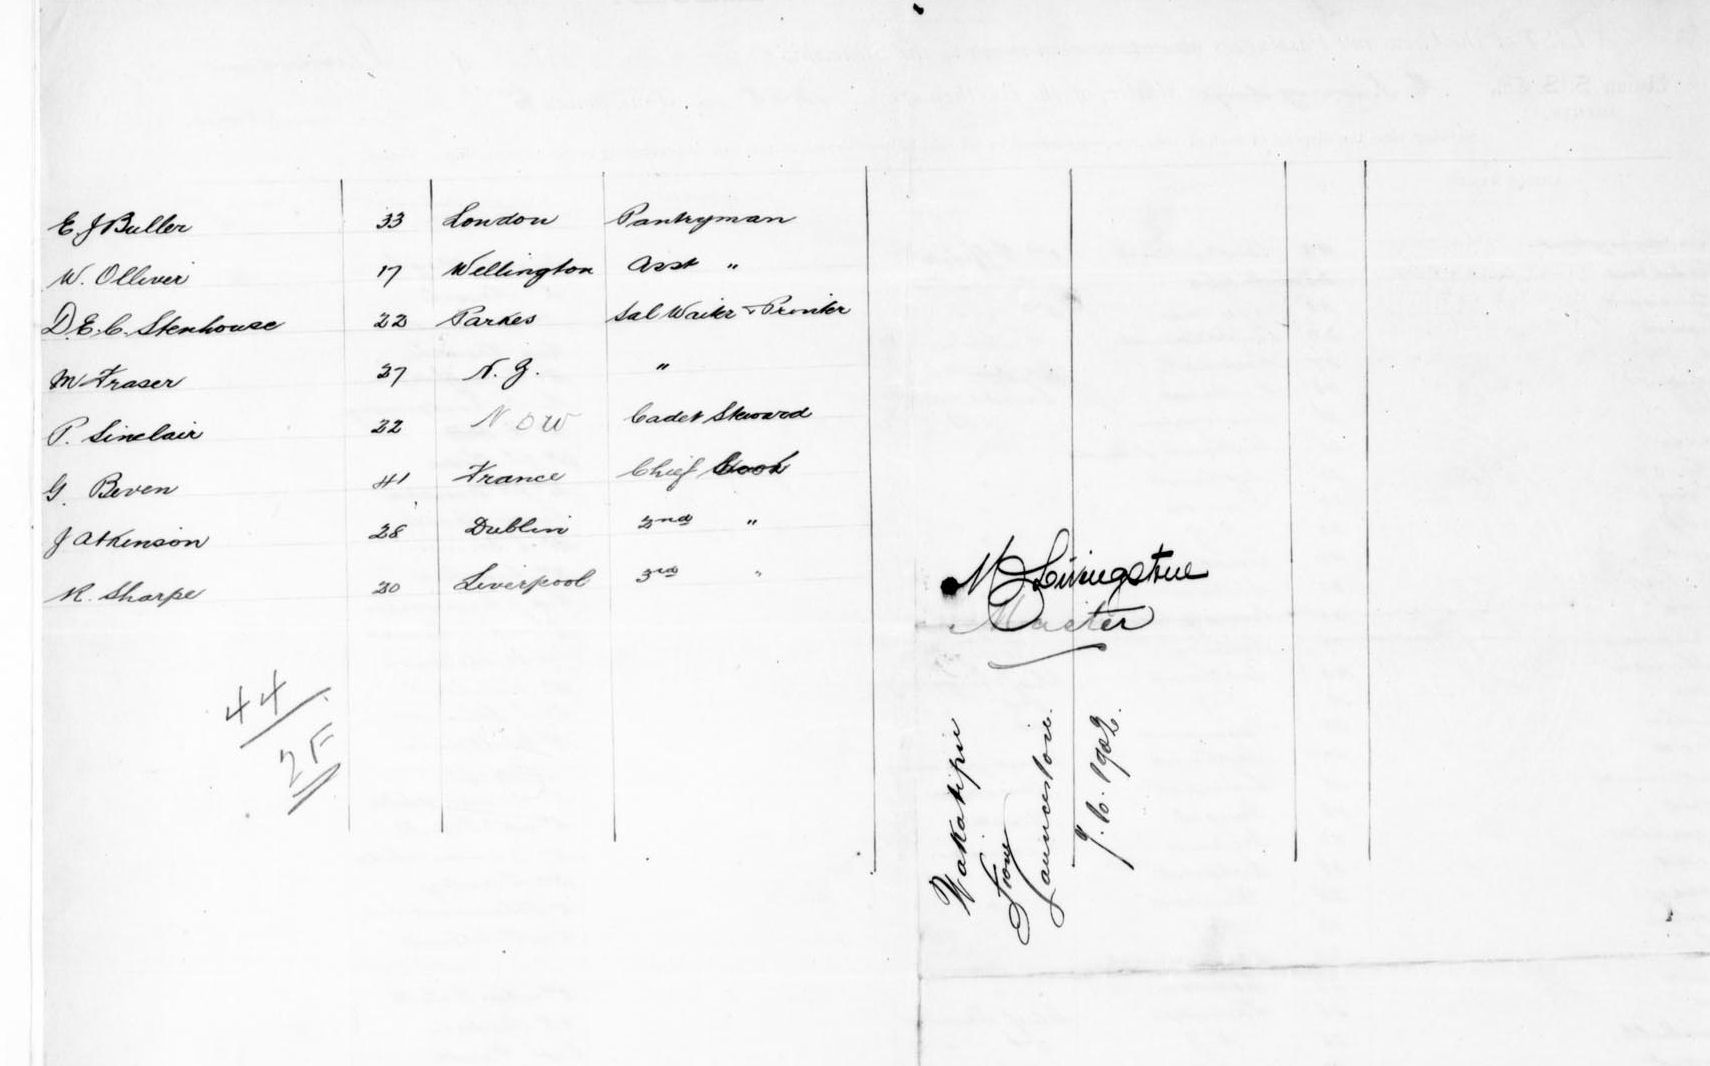 E. J Buller 33 London Pantryman
W. Olliver 17 Wellington Asst "
D. E. C. Stenhouse 22 Parkes Sal Waiter & Printer
M Fraser 27 N. Z. "
P. Sinclair 22 N S W Cadet Steward
G. Beven 41 France Chief Cook
J Atkinson 28 Dublin 2nd "
R. Sharpe 20 Liverpool 3rd "
M Livingstone
Master
44
2F
Wakatipu
From
Launceston
1902